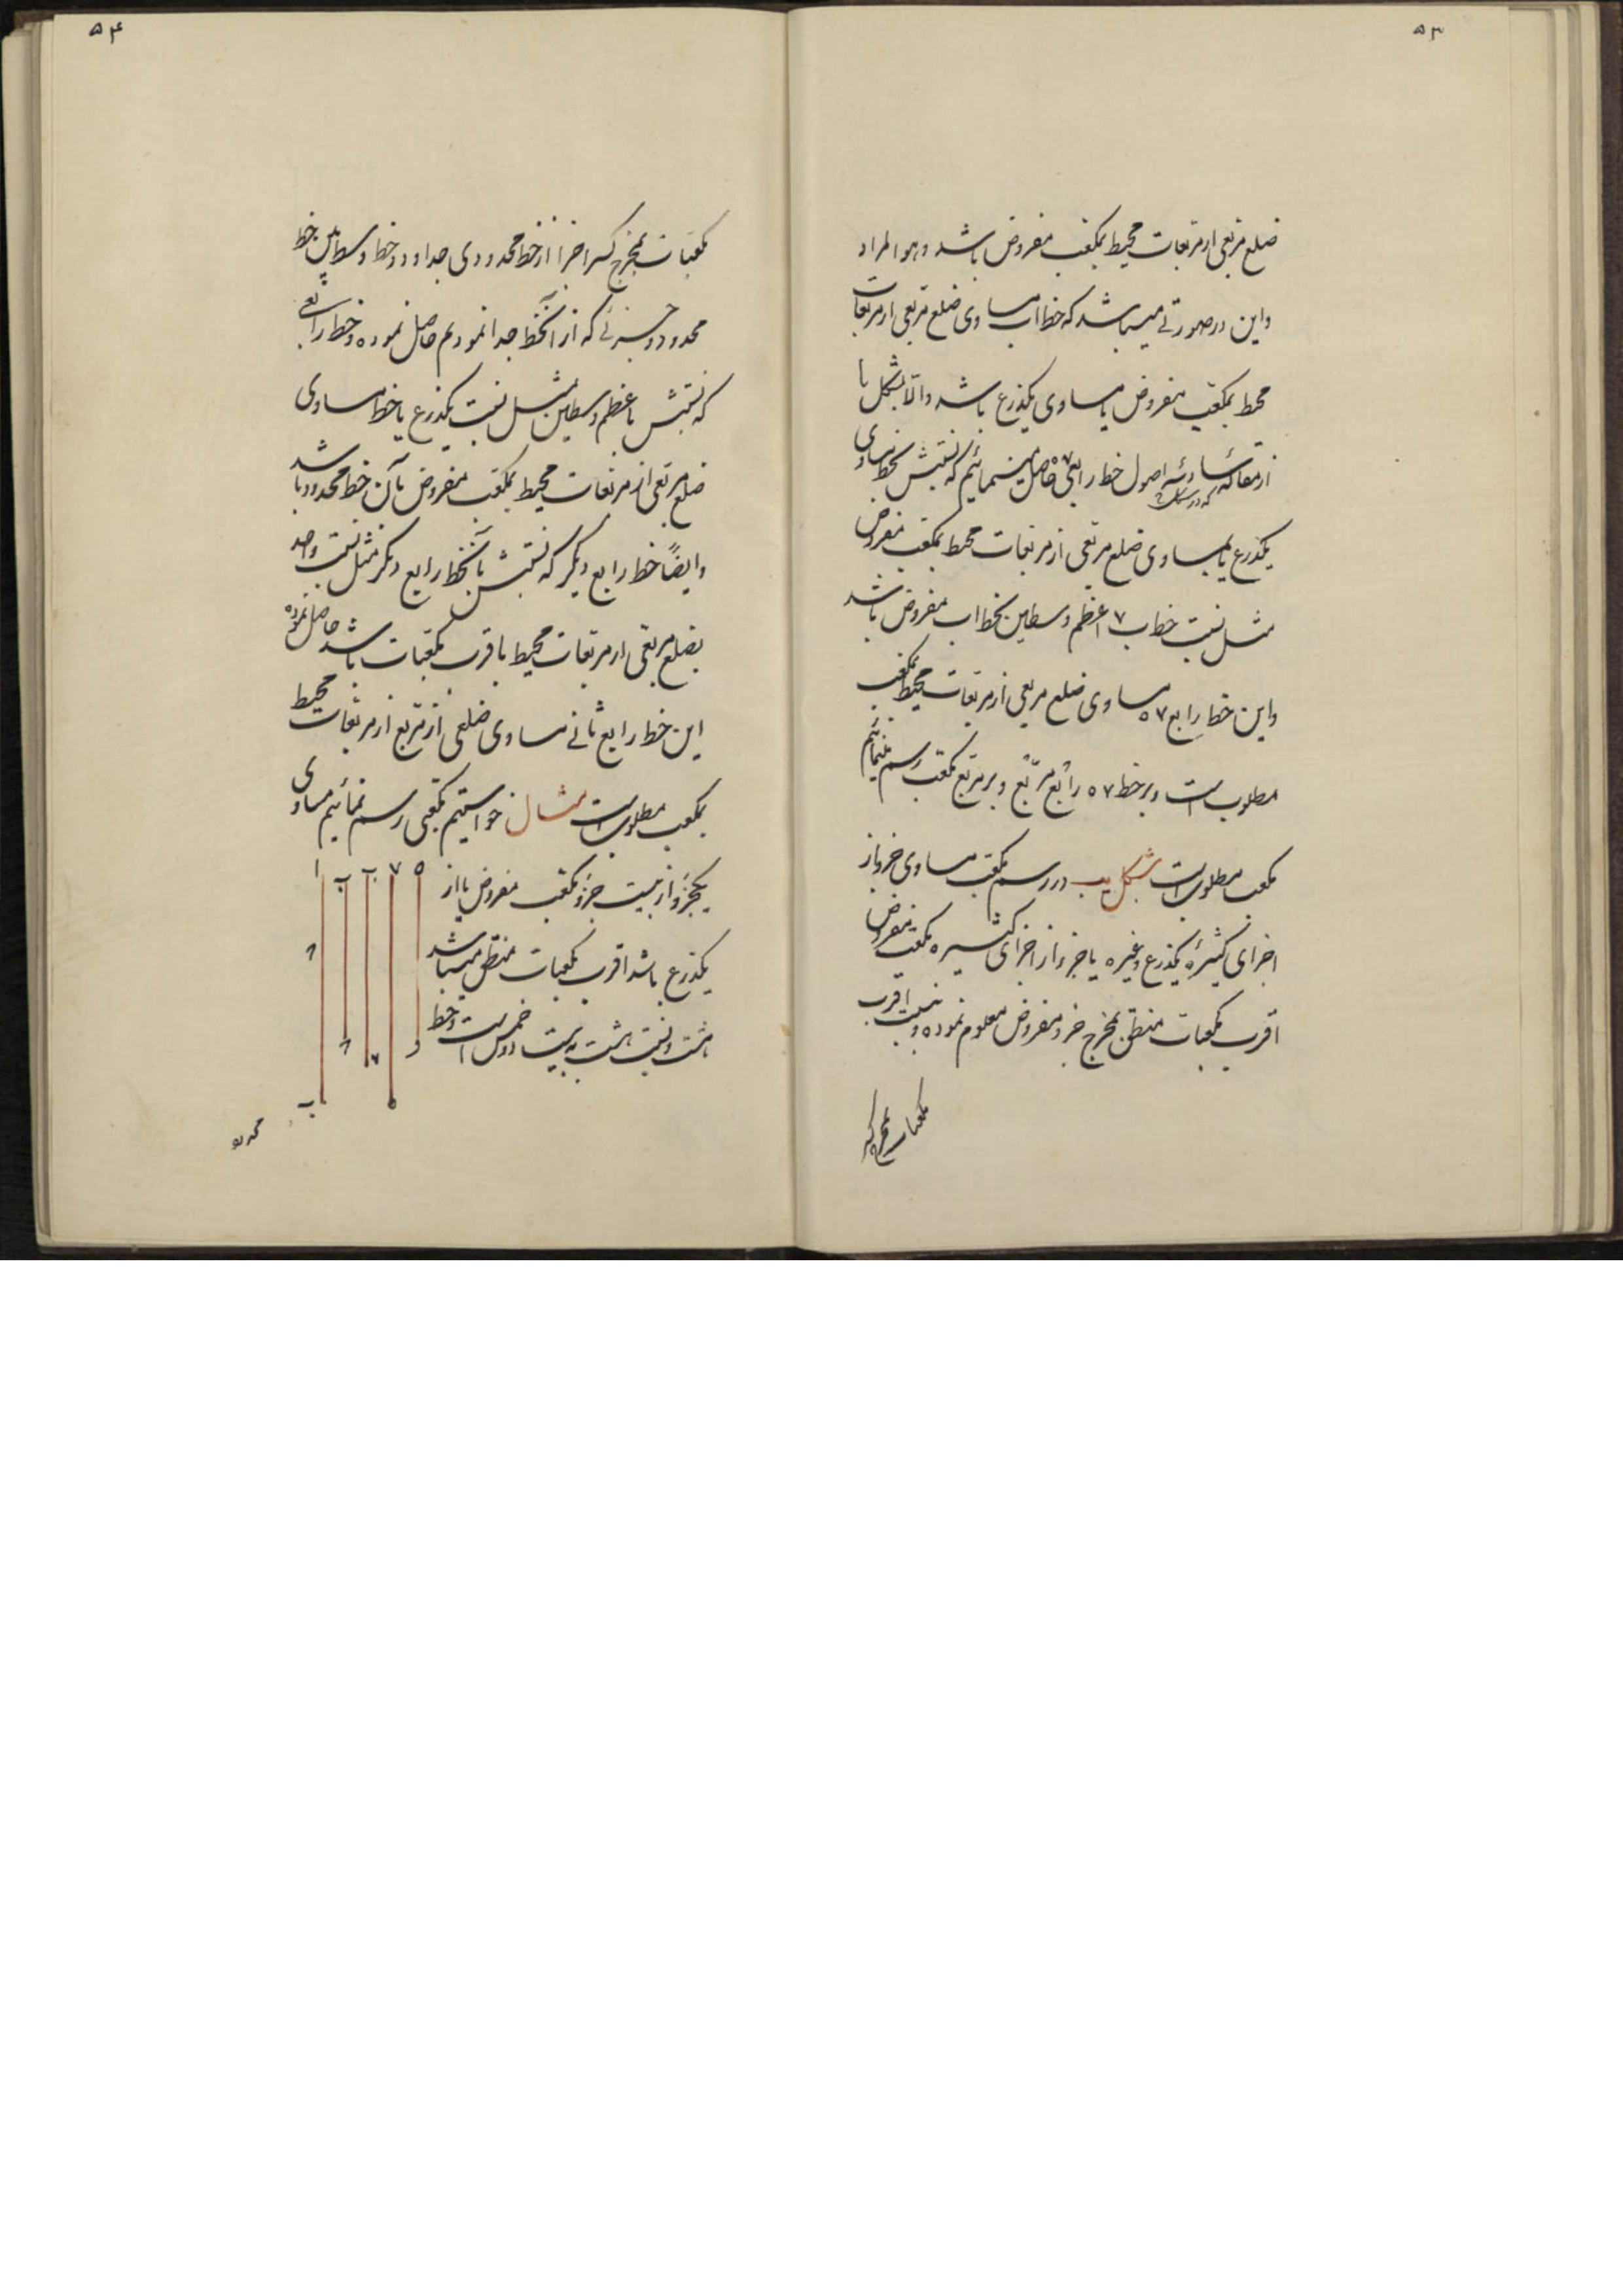 ۵۳
ضلع مربعی از مربعات محیط بمکعب مفروض باشد و هو المراد
و این در صورتی میباشد که خط اب مساوی ضلع مربعی از مربعات
محیط بمکعب مفروض یا مساوی یکذرع باشد و الا بشکل یا
از مقاله سادسه اصول خط رابعی حاصل مینمائیم که نسبتش بخط مساوی
یکذرع یا مساوی ضلع مربعی از مربعات محیط بمکعب مفروض
مثل نسبت خط ب ۷ اعظم وسطین بخط اب مفروض باشد
و این خط رابع ۷ ۵ مساوی ضلع مربعی از مربعات محیط بمکعب
مطلوب است و بر خط ۷ ۵ رابع مربع و بر مربع مکعب رسم مینمائیم
مکعب مطلوب است شکل یب در رسم مکعب مساوی جزو از
اجزای کثیره یکذرع و غیره یا جزء از اجزای کثیره مکعب مفروض
اقرب مکعبات منطق بمخرج جزو مفروض معلوم نموده و نسبت اقرب
مکعبات بمخرج که
۵۴
مکعبات بمخرج کسر اجزا از خط محدودی جدا و دو خط وسطین بین خط
محدود و جزئی که از آنخط جدا نمودیم حاصل نموده و خط رابعی
که نسبتش با عظم وسطین مثل نسبت یکذرع یا خط مساوی
ضلع مربعی از مربعات محیط بمکعب مفروض بآن خط محدود باشد
و ایضاً خط رابع دیگر که نسبتش بآنخط رابع دیگر مثل نسبت واحد
بضلع مربعی از مربعات محیط باقرب مکعبات باشد حاصل نموده
این خط رابع ثانی مساوی ضلعی از مربع از مربعات محیط
بمکعب مطلوب است مثال خواستیم مکعبی رسم نمائیم مساوی
یکجزو از بیست جزو مکعب مفروض یا از
یکذرع باشد اقرب مکعبات منطق میباشد
هشت و نسبت هشت به بیست دو خمس است و خط
ا ب ب ۷ ۵
ب ۵